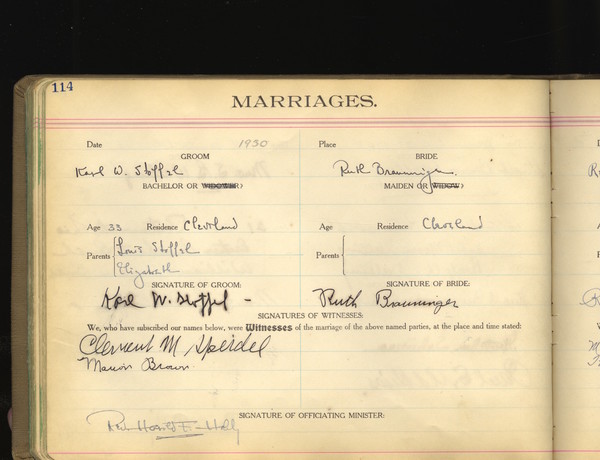 114
MARRIAGES.
Date 1930 Place
GROOM BRIDE
Karl W. Stoffel Ruth Brauninger.
BACHELOR OR WIDOWER) MAIDEN OR WIDOW)
Age 33 Residence Cleveland Age Residence Cleveland
Parents Louis Stoffel Parents
Elizabeth
SIGNATURE OF GROOM: SIGNATURE OF BRIDE:
Karl W. Stoffel - Ruth Brauninger
SIGNATURES OF WITNESSES:
We, who have subscribed our names below, were Witnesses of the marriage of the above named parties, at the place and time stated:
Clement M Speidel
Marion Brown
SIGNATURE OF OFFICIATING MINISTER:
Rev. Harold F.